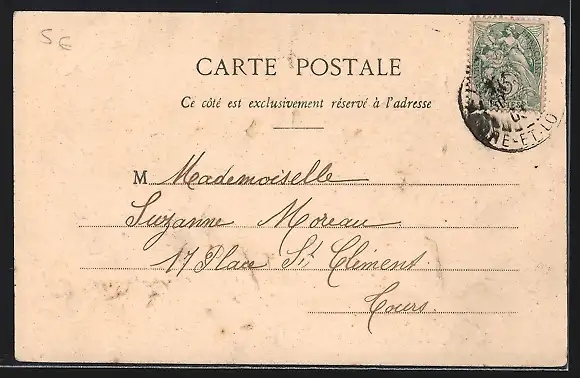 5E
CARTE POSTALE
Ce côté est exclusivement réservé à l'adresse
M Mademoiselle
Suzanne Moreau
17 Place St Clément
Tours
RE-ET-LO